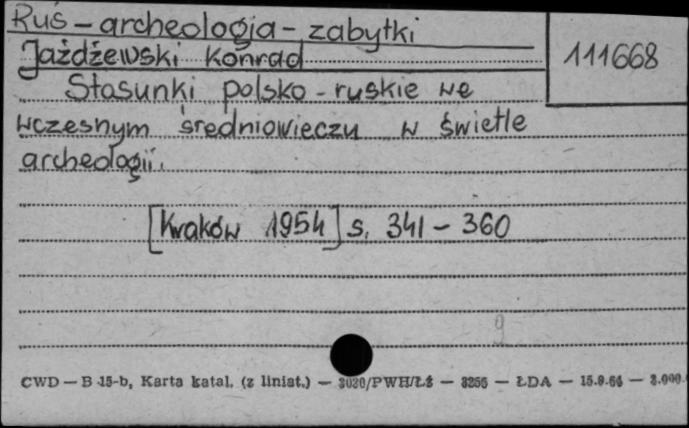 Ruś - archeologia - zabytki
111668
Jażdżewski Konrad
Stosunki polsko - ruskie we
wczesnym średniowieczu w świetle
archeologii.
[Kraków 1954] s. 341 - 360
9
CWD — B 15-b, Karta katal. (z liniat.) — 3020/PWH/Łż — 3256 — ŁDA — 15.9.66 — 3.000